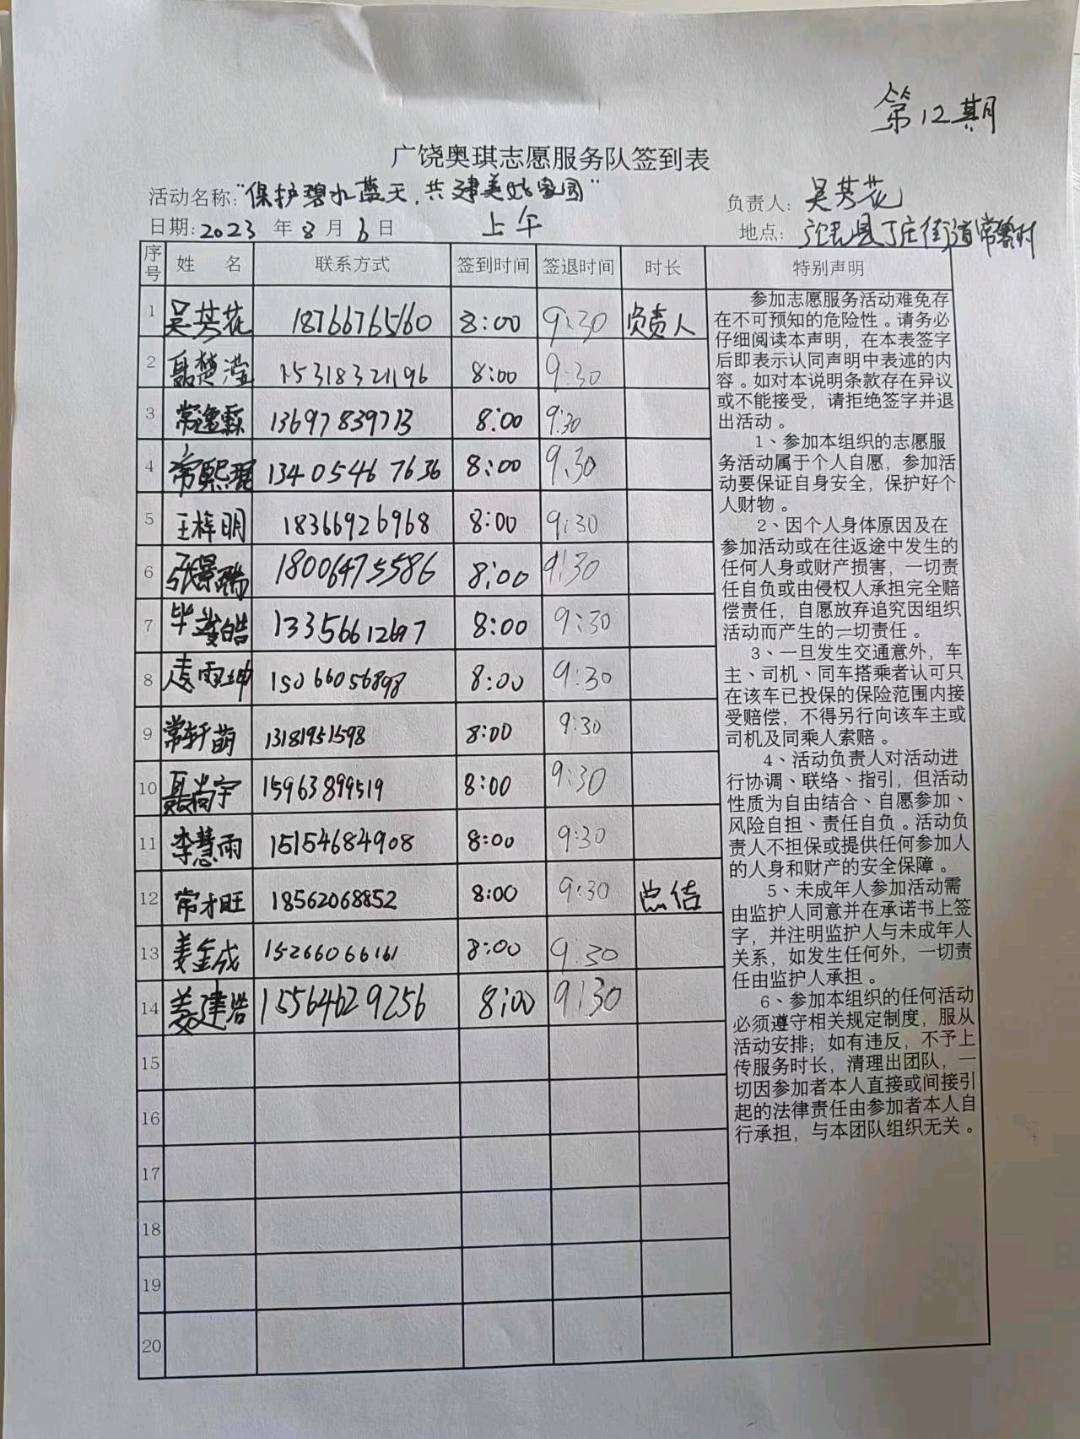 第12期
广饶奥琪志愿服务队签到表
活动名称:"保护碧水蓝天,共建美好家园"
负责人: 吴芳花
日期: 2023 年 8 月 6 日 上午
地点: 丁庄街道常
序号 姓 名 联系方式 签到时间 签退时间 时长 特别声明
1 吴芳花 18766765160 8:00 9:30 负责人
2 聂楚滢 15318321196 8:00 9:30
3 常逸霖 13697839713 8:00 9:30
4 常熙琨 13405467636 8:00 9:30
5 王梓明 18366926968 8:00 9:30
6 张景瑞 18006475586 8:00 9:30
7 毕 皓 8:00 9:30
8 凌雨坤 15066056898 8:00 9:30
9 常轩萌 13181951598 8:00 9:30
10 聂尚宇 15963899519 8:00 9:30
11 李慧雨 15154684908 8:00 9:30
12 常才旺 18562068852 8:00 9:30 总结
13 姜金成 15266066161 8:00 9:30
14 姜建浩 15564629256 8:00 9:30
15
16
17
18
19
20
参加志愿服务活动难免存
在不可预知的危险性。请务必
仔细阅读本声明，在本表签字
后即表示认同声明中表述的内
容。如对本说明条款存在异议
或不能接受，请拒绝签字并退
出活动。
1、参加本组织的志愿服
务活动属于个人自愿，参加活
动要保证自身安全，保护好个
人财物。
2、因个人身体原因及在
参加活动或在往返途中发生的
任何人身或财产损害，一切责
任自负或由侵权人承担完全赔
偿责任，自愿放弃追究因组织
活动而产生的一切责任。
3、一旦发生交通意外，车
主、司机、同车搭乘者认可只
在该车已投保的保险范围内接
受赔偿，不得另行向该车主或
司机及同乘人索赔。
4、活动负责人对活动进
行协调、联络、指引，但活动
性质为自由结合、自愿参加、
风险自担、责任自负。活动负
责人不担保或提供任何参加人
的人身和财产的安全保障。
5、未成年人参加活动需
由监护人同意并在承诺书上签
字，并注明监护人与未成年人
关系，如发生任何外，一切责
任由监护人承担。
6、参加本组织的任何活动
必须遵守相关规定制度，服从
活动安排；如有违反，不予上
传服务时长，清理出团队，一
切因参加者本人直接或间接引
起的法律责任由参加者本人自
行承担，与本团队组织无关。